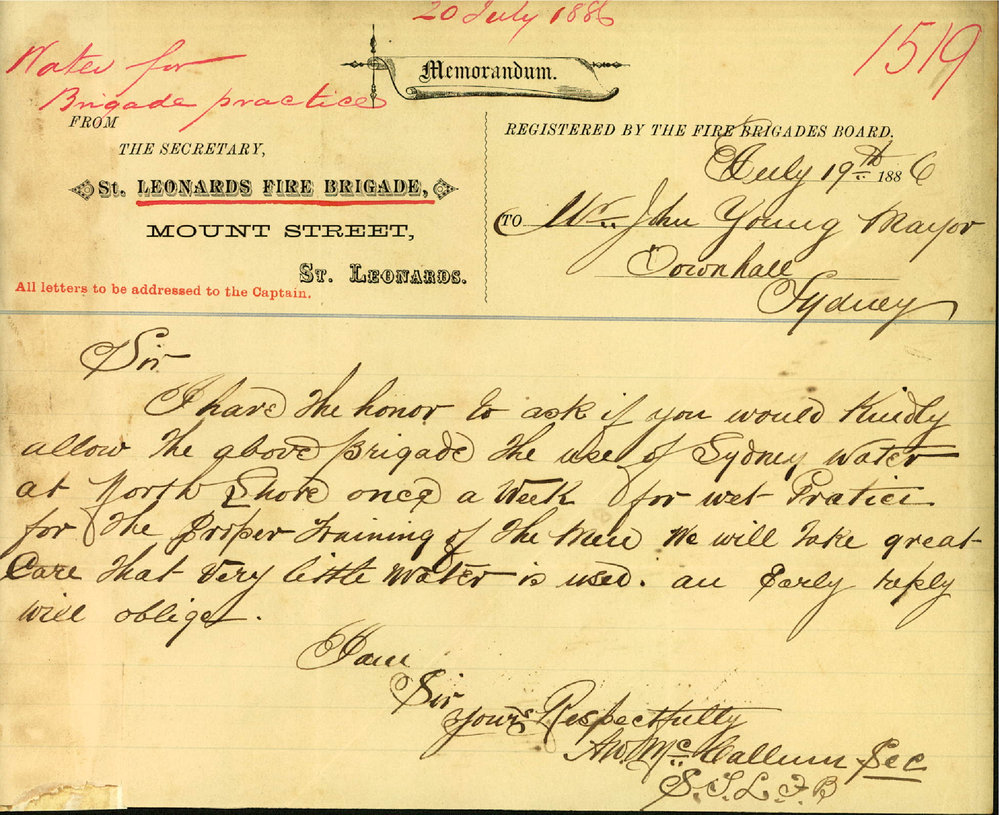 20 July 1886
1519
Water for
Brigade practice
Memorandum.
FROM
THE SECRETARY,
St. LEONARDS FIRE BRIGADE,
MOUNT STREET,
ST. LEONARDS.
All letters to be addressed to the Captain.
REGISTERED BY THE FIRE BRIGADES BOARD.
July 19th 1886
TO Mr. John Young Mayor
Townhall
Sydney
Sir
I have the honor to ask if you would Kindly
allow the above Brigade the use of Sydney Water
at North Shore once a Week for wet Pratice
for the Proper training of the Men We will take great
Care that Very little Water is used. an Early reply
will oblige.
I am
Sir
Yours Respectfully
And. McCallum Sec
S. T. L. F. B